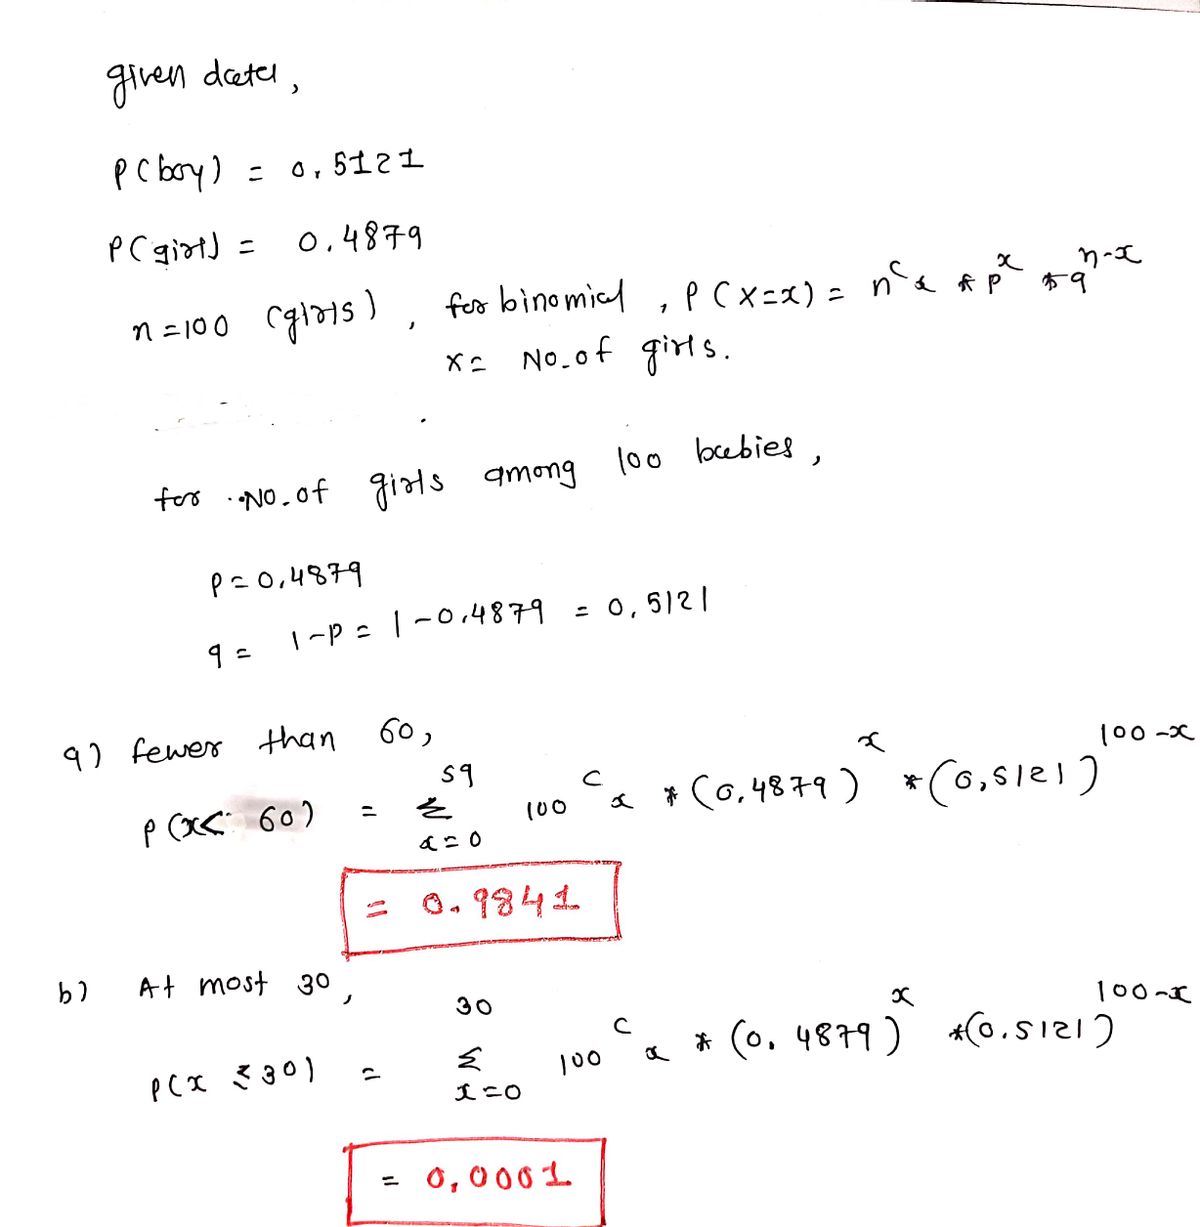 given data,
P(boy) = 0.5121
P(girl) = 0.4879
n=100 (girls), for binomial, P(X=x) = nCx * p^x * q^n-x
X= No. of girls.
for No. of girls among 100 babies,
P=0.4879
q = 1-P = 1-0.4879 = 0.5121
a) fewer than 60,
P(x< 60) = 59 Σ x=0 100 C x * (0.4879)^x * (0.5121)^100-x
= 0.9841
b) At most 30,
P(x ≤ 30) = 30 Σ x=0 100 C x * (0.4879)^x * (0.5121)^100-x
= 0.0001